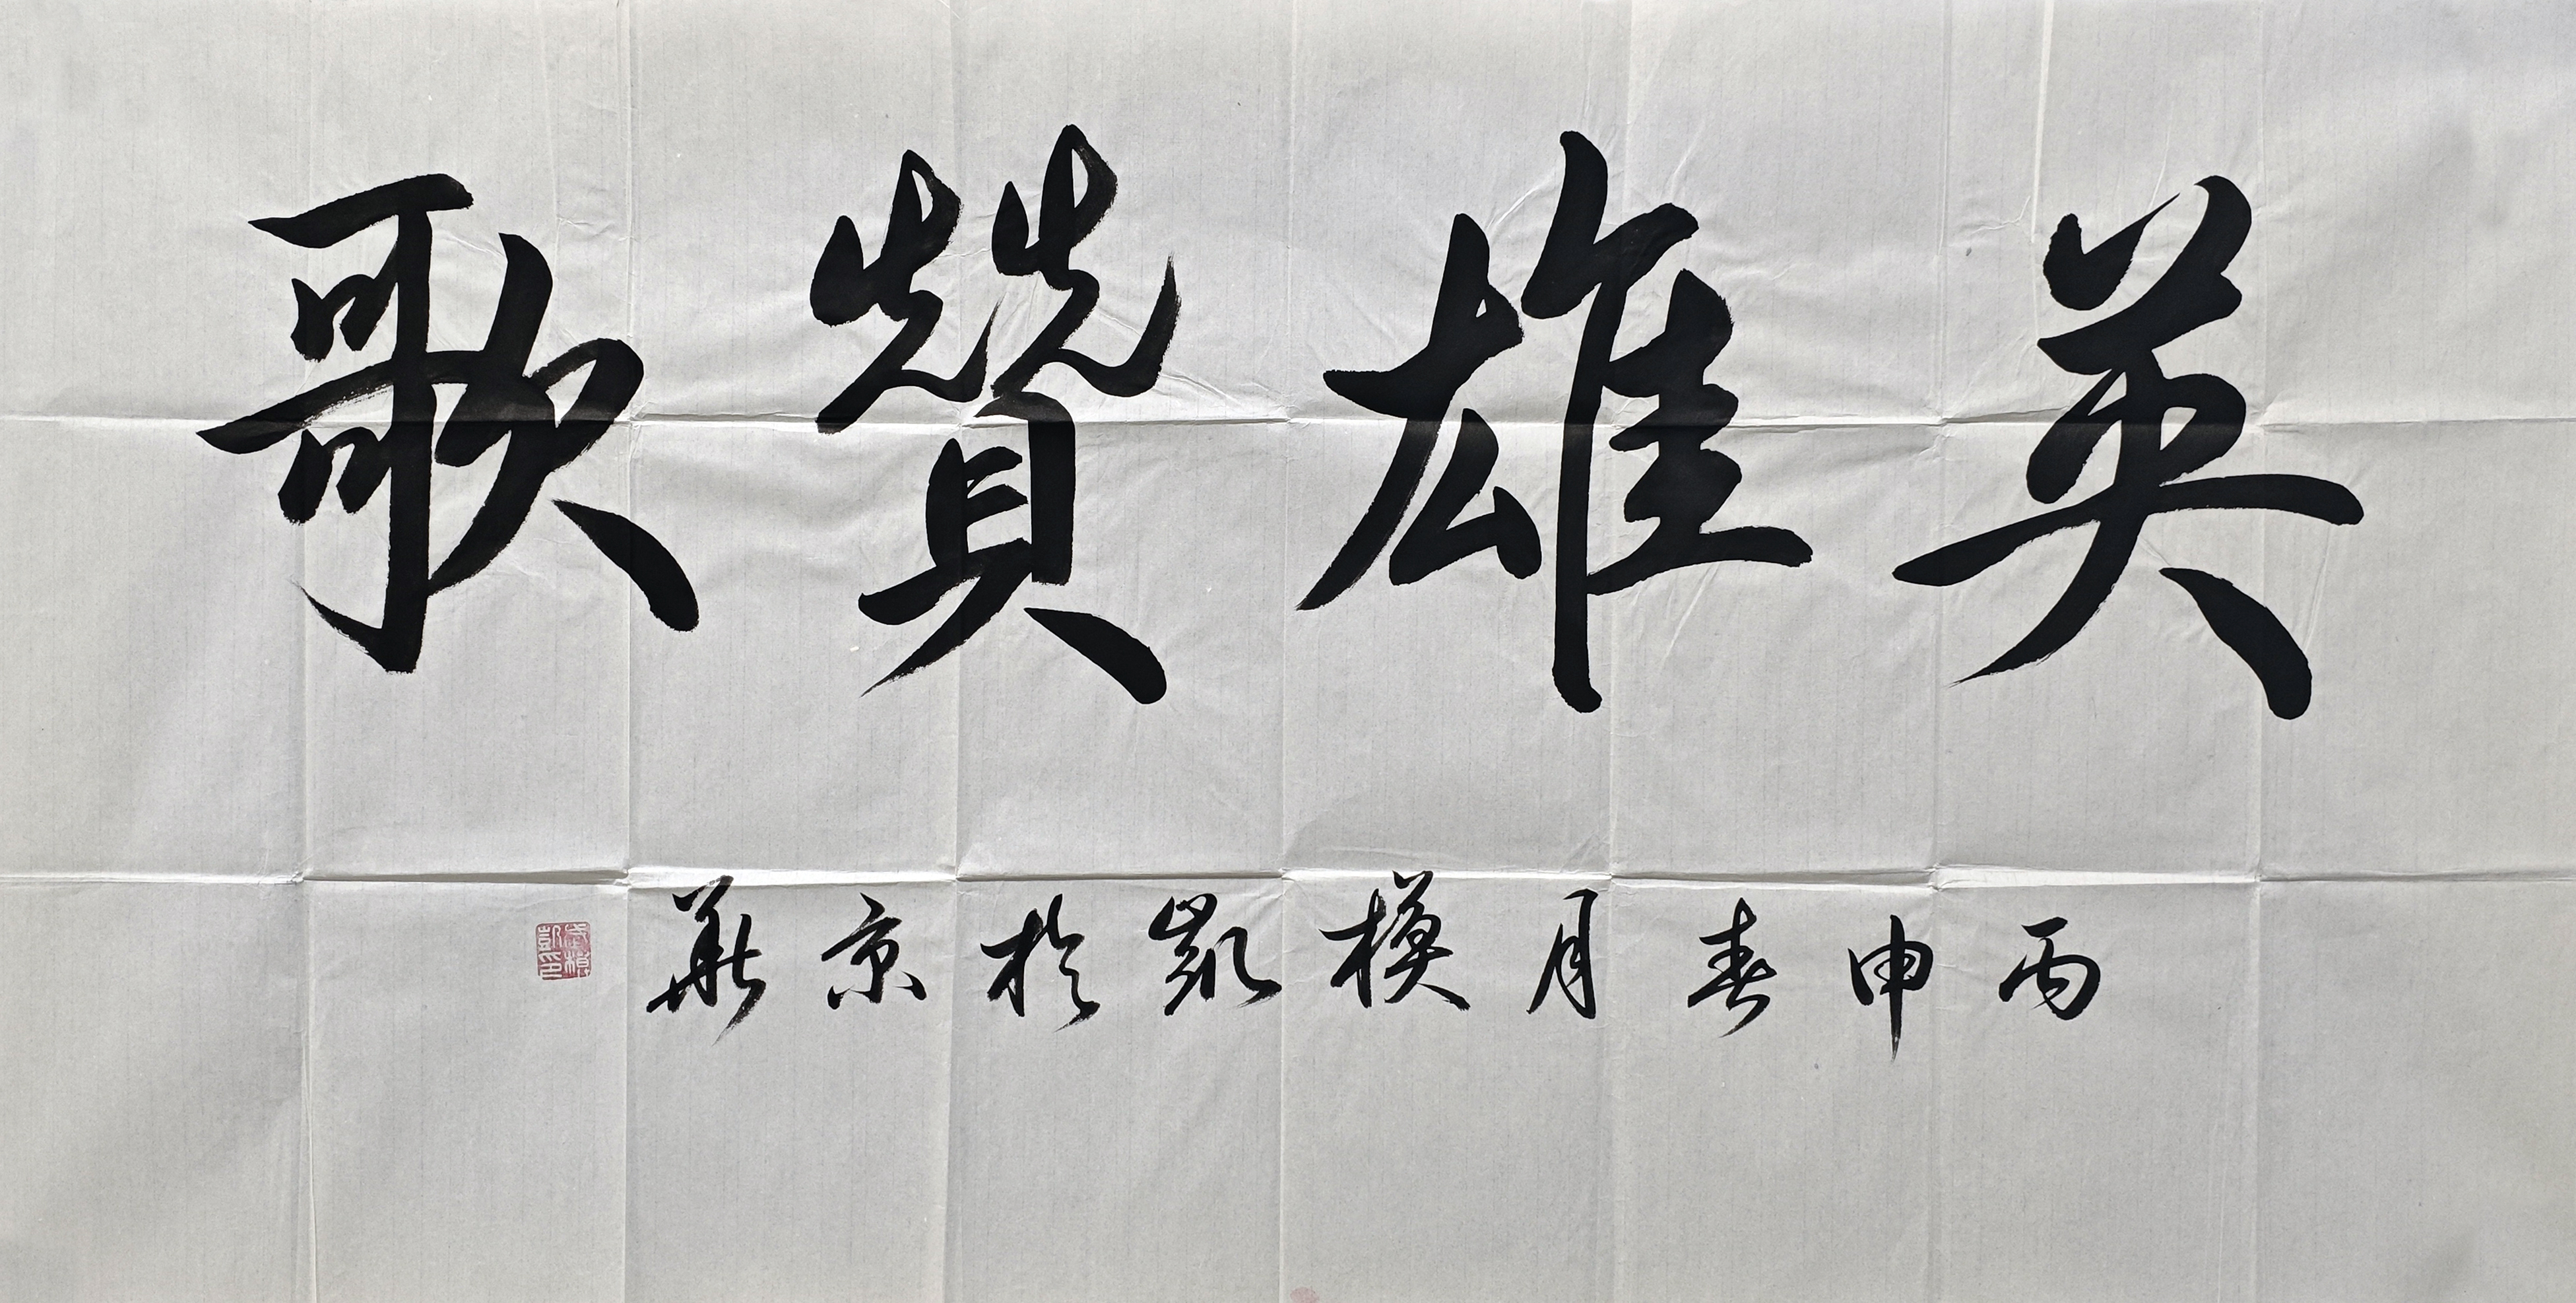 英雄贊歌
丙申春月模凱於京華